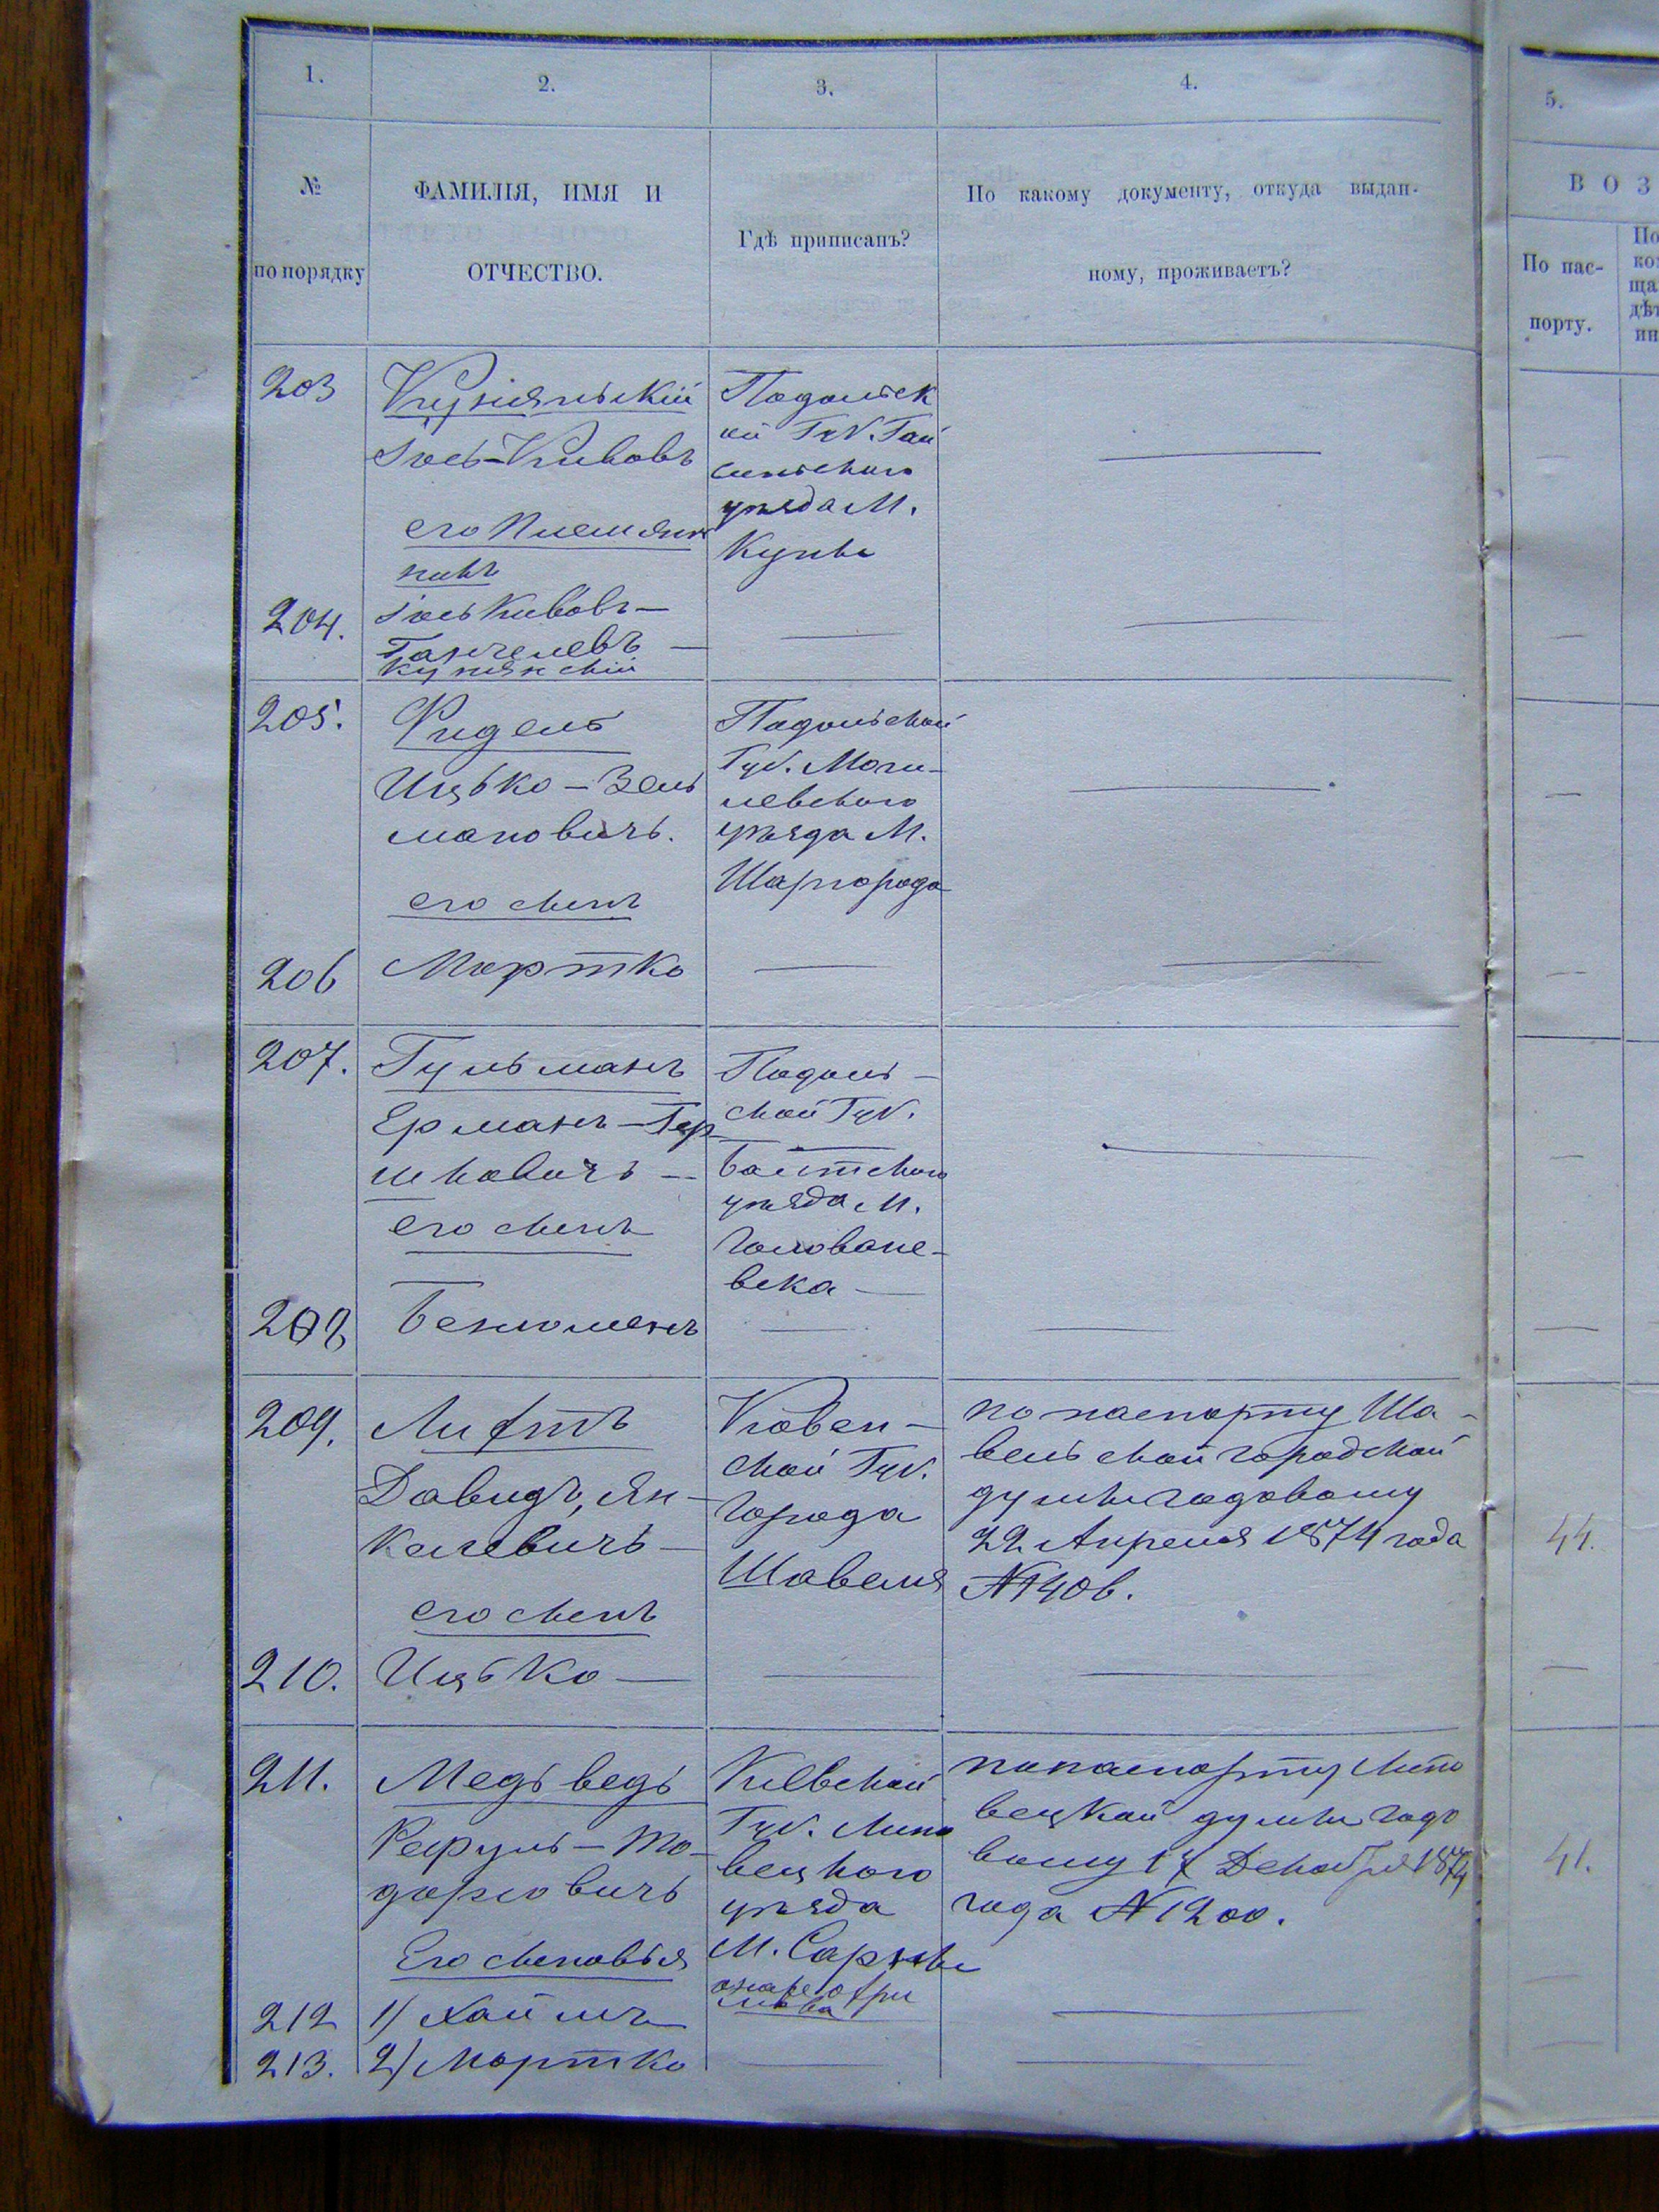 1.
2.
3.
4.
5.
№
по порядку
ФАМИЛІЯ, ИМЯ И
ОТЧЕСТВО.
Гдѣ приписанъ?
По какому документу, откуда выдан-
ному, проживаетъ?
ВОЗ
По пас-
порту.
203
Кунянскій
Іось-Кивовъ
Подольск
ой Губ. Гай
синского
уѣзда М.
Куны
его племян
никъ
204.
Іось Кивовъ —
Кунянскій
205.
Фидель
Ицько - Зель
мановичъ.
Подольской
Губ. Моги-
левского
уѣзда М.
Шаргорода
его сынъ
206
Мортко
207.
Гульманъ
Ерманъ - Гер
шковичъ —
Подоль-
ской Губ.
Балтского
уѣзда М.
Головане-
вска —
его сынъ
208
Беньоменъ
209.
Лифтъ
Давидъ, Ян-
келевичъ —
Ковен-
ской Губ.
города
Шавеля
по паспорту Ша-
вельской городской
думы годовому
22 Апреля 1874 года
№ 1406.
44.
его сынъ
210.
Ицько —
211.
Медьведь
Рефуль - То-
дорковичъ
Кіевской
Губ. Липо
вецкого
уѣзда
М. Сарны
по паспорту Липо
вецкой думы годо
вому 17 Декабря 1874
года № 1200.
41.
Его сыновья
212
1) Хаймъ
213.
2) Мортко